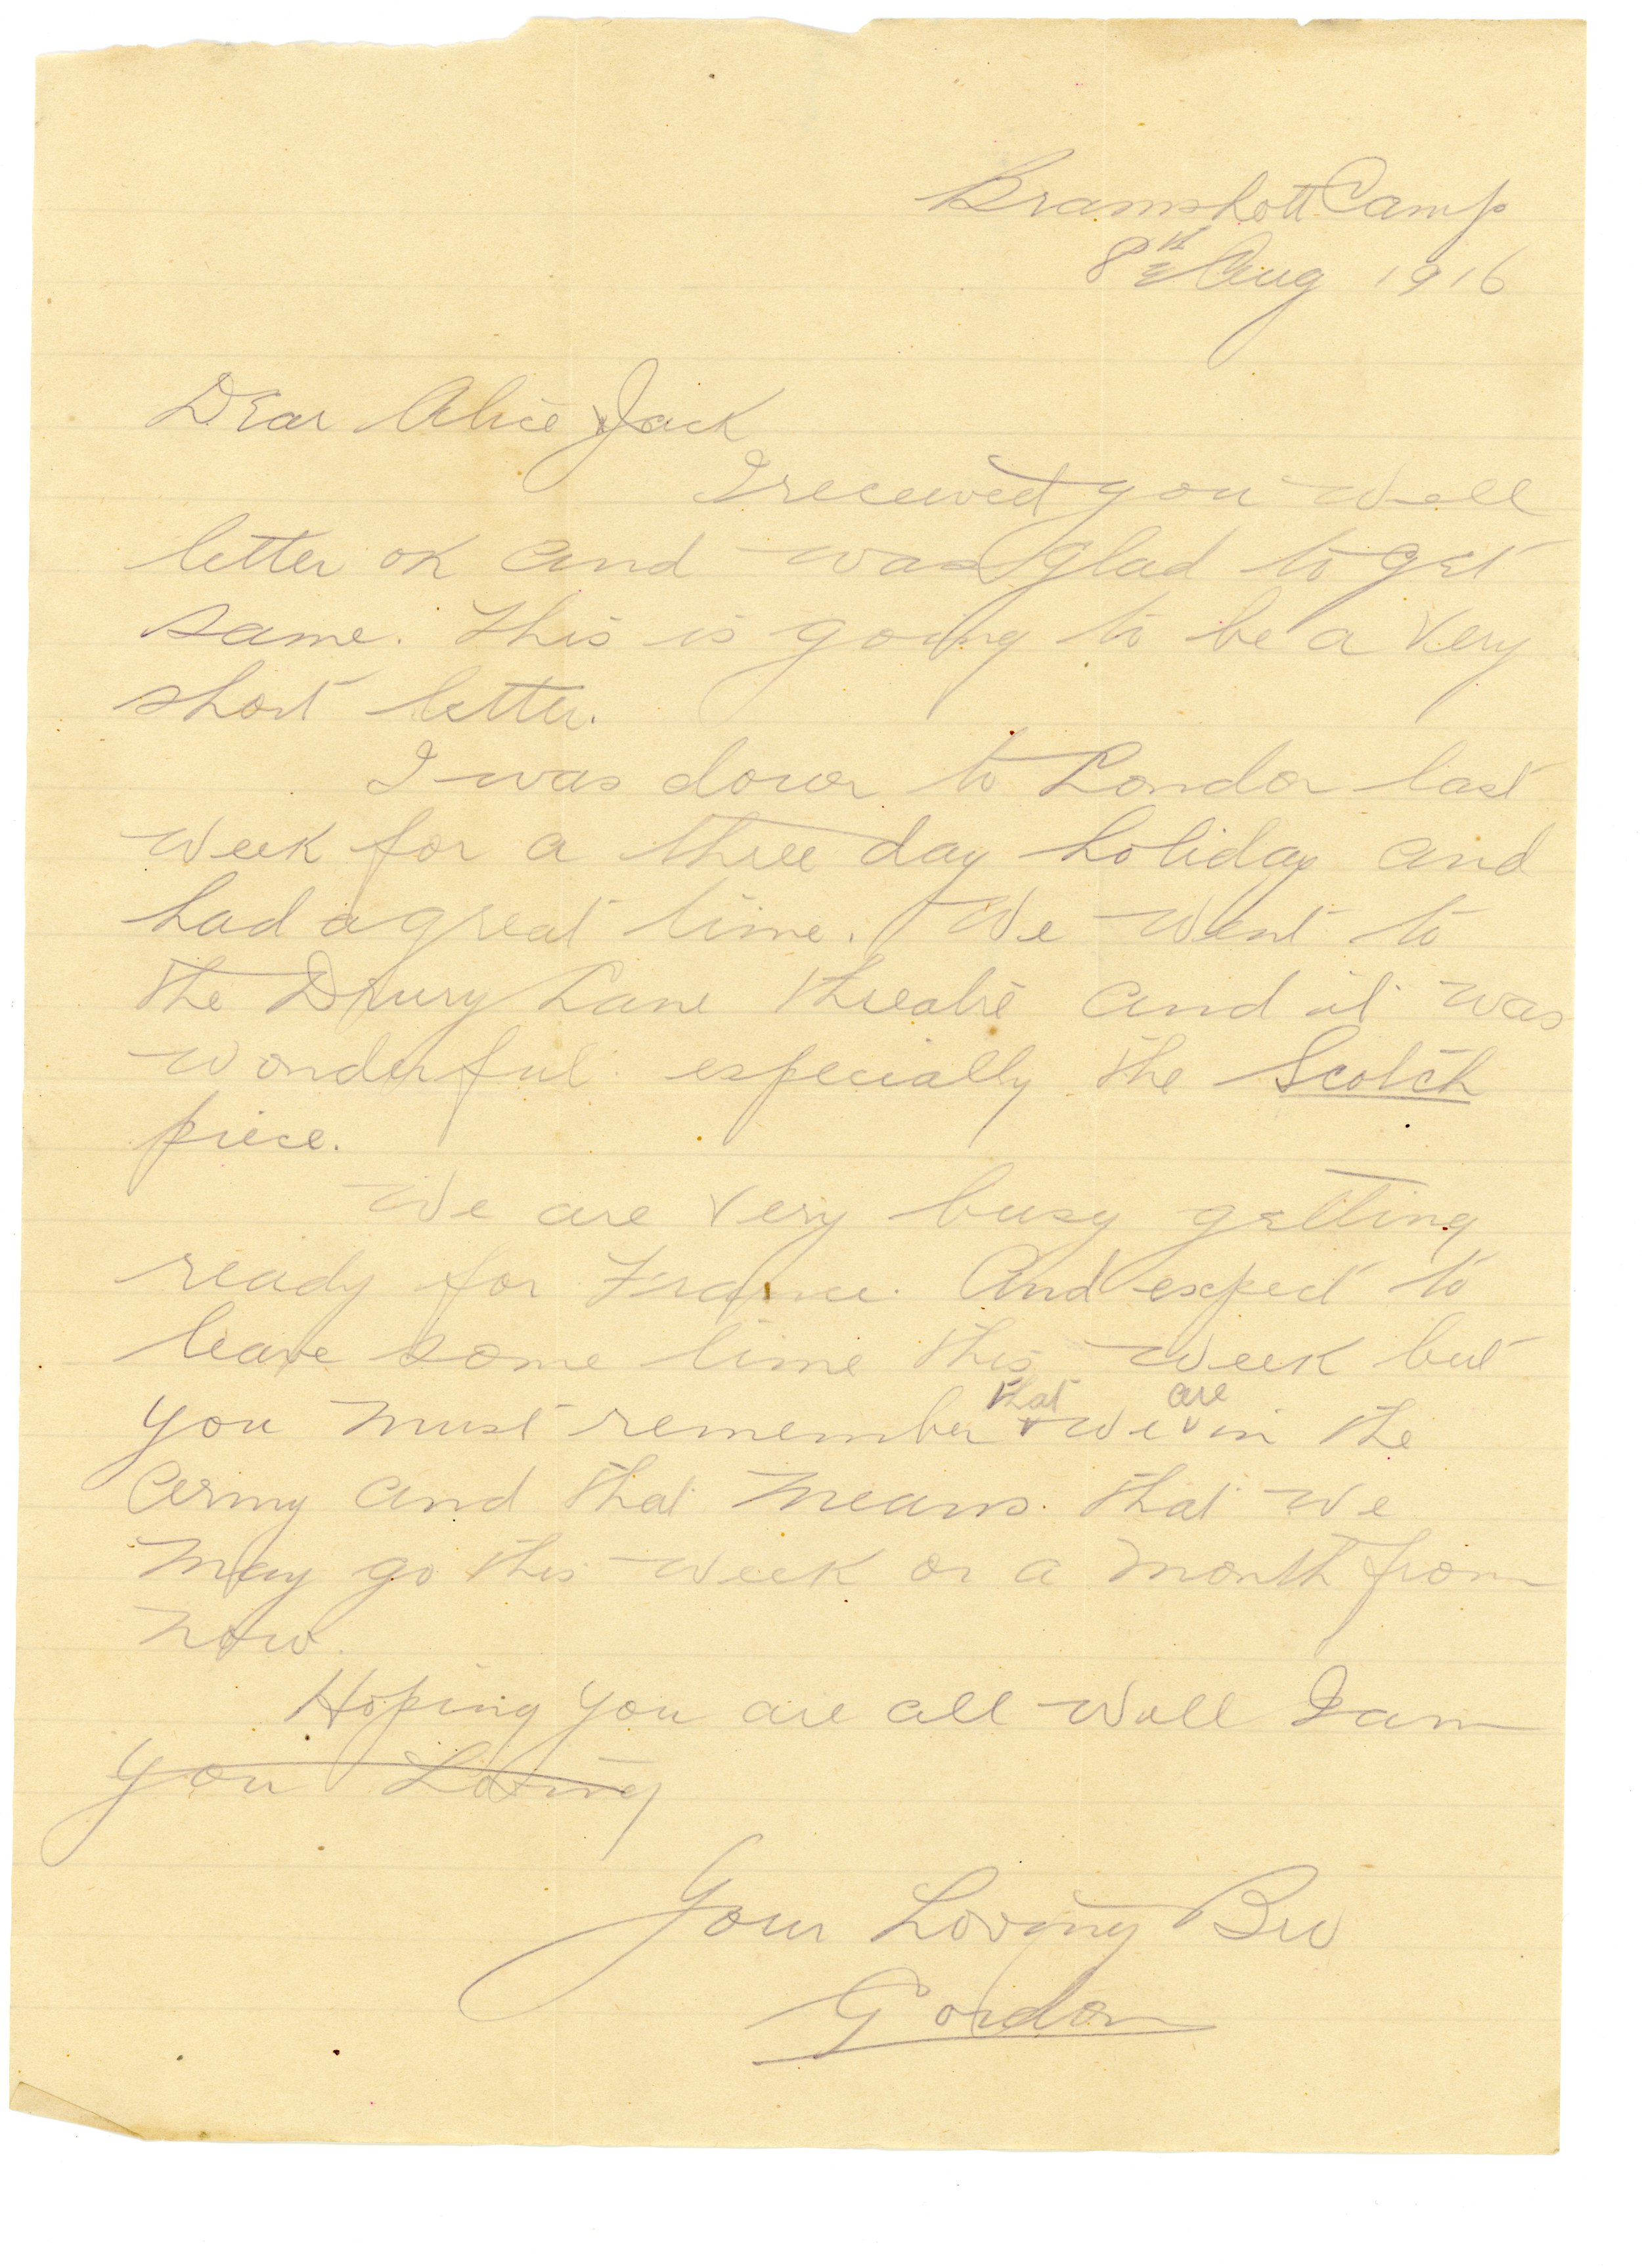 Bramshott Camp
8th Aug 1916
Dear Alice & Jack
I received you well
letter OK and was glad to get
same. This is going to be a very
short letter.
I was down to London last
week for a three day holiday and
had a great time. We went to
the Drury Lane theatre and it was
wonderful especially the Scotch
piece.
We are very busy getting
ready for France. And expect to
leave some time this week but
you must remember that we are in the
army and that means that we
may go this week or a month from
now.
Hoping you are all well I am
you Loving
Your Loving Bro
Gordon